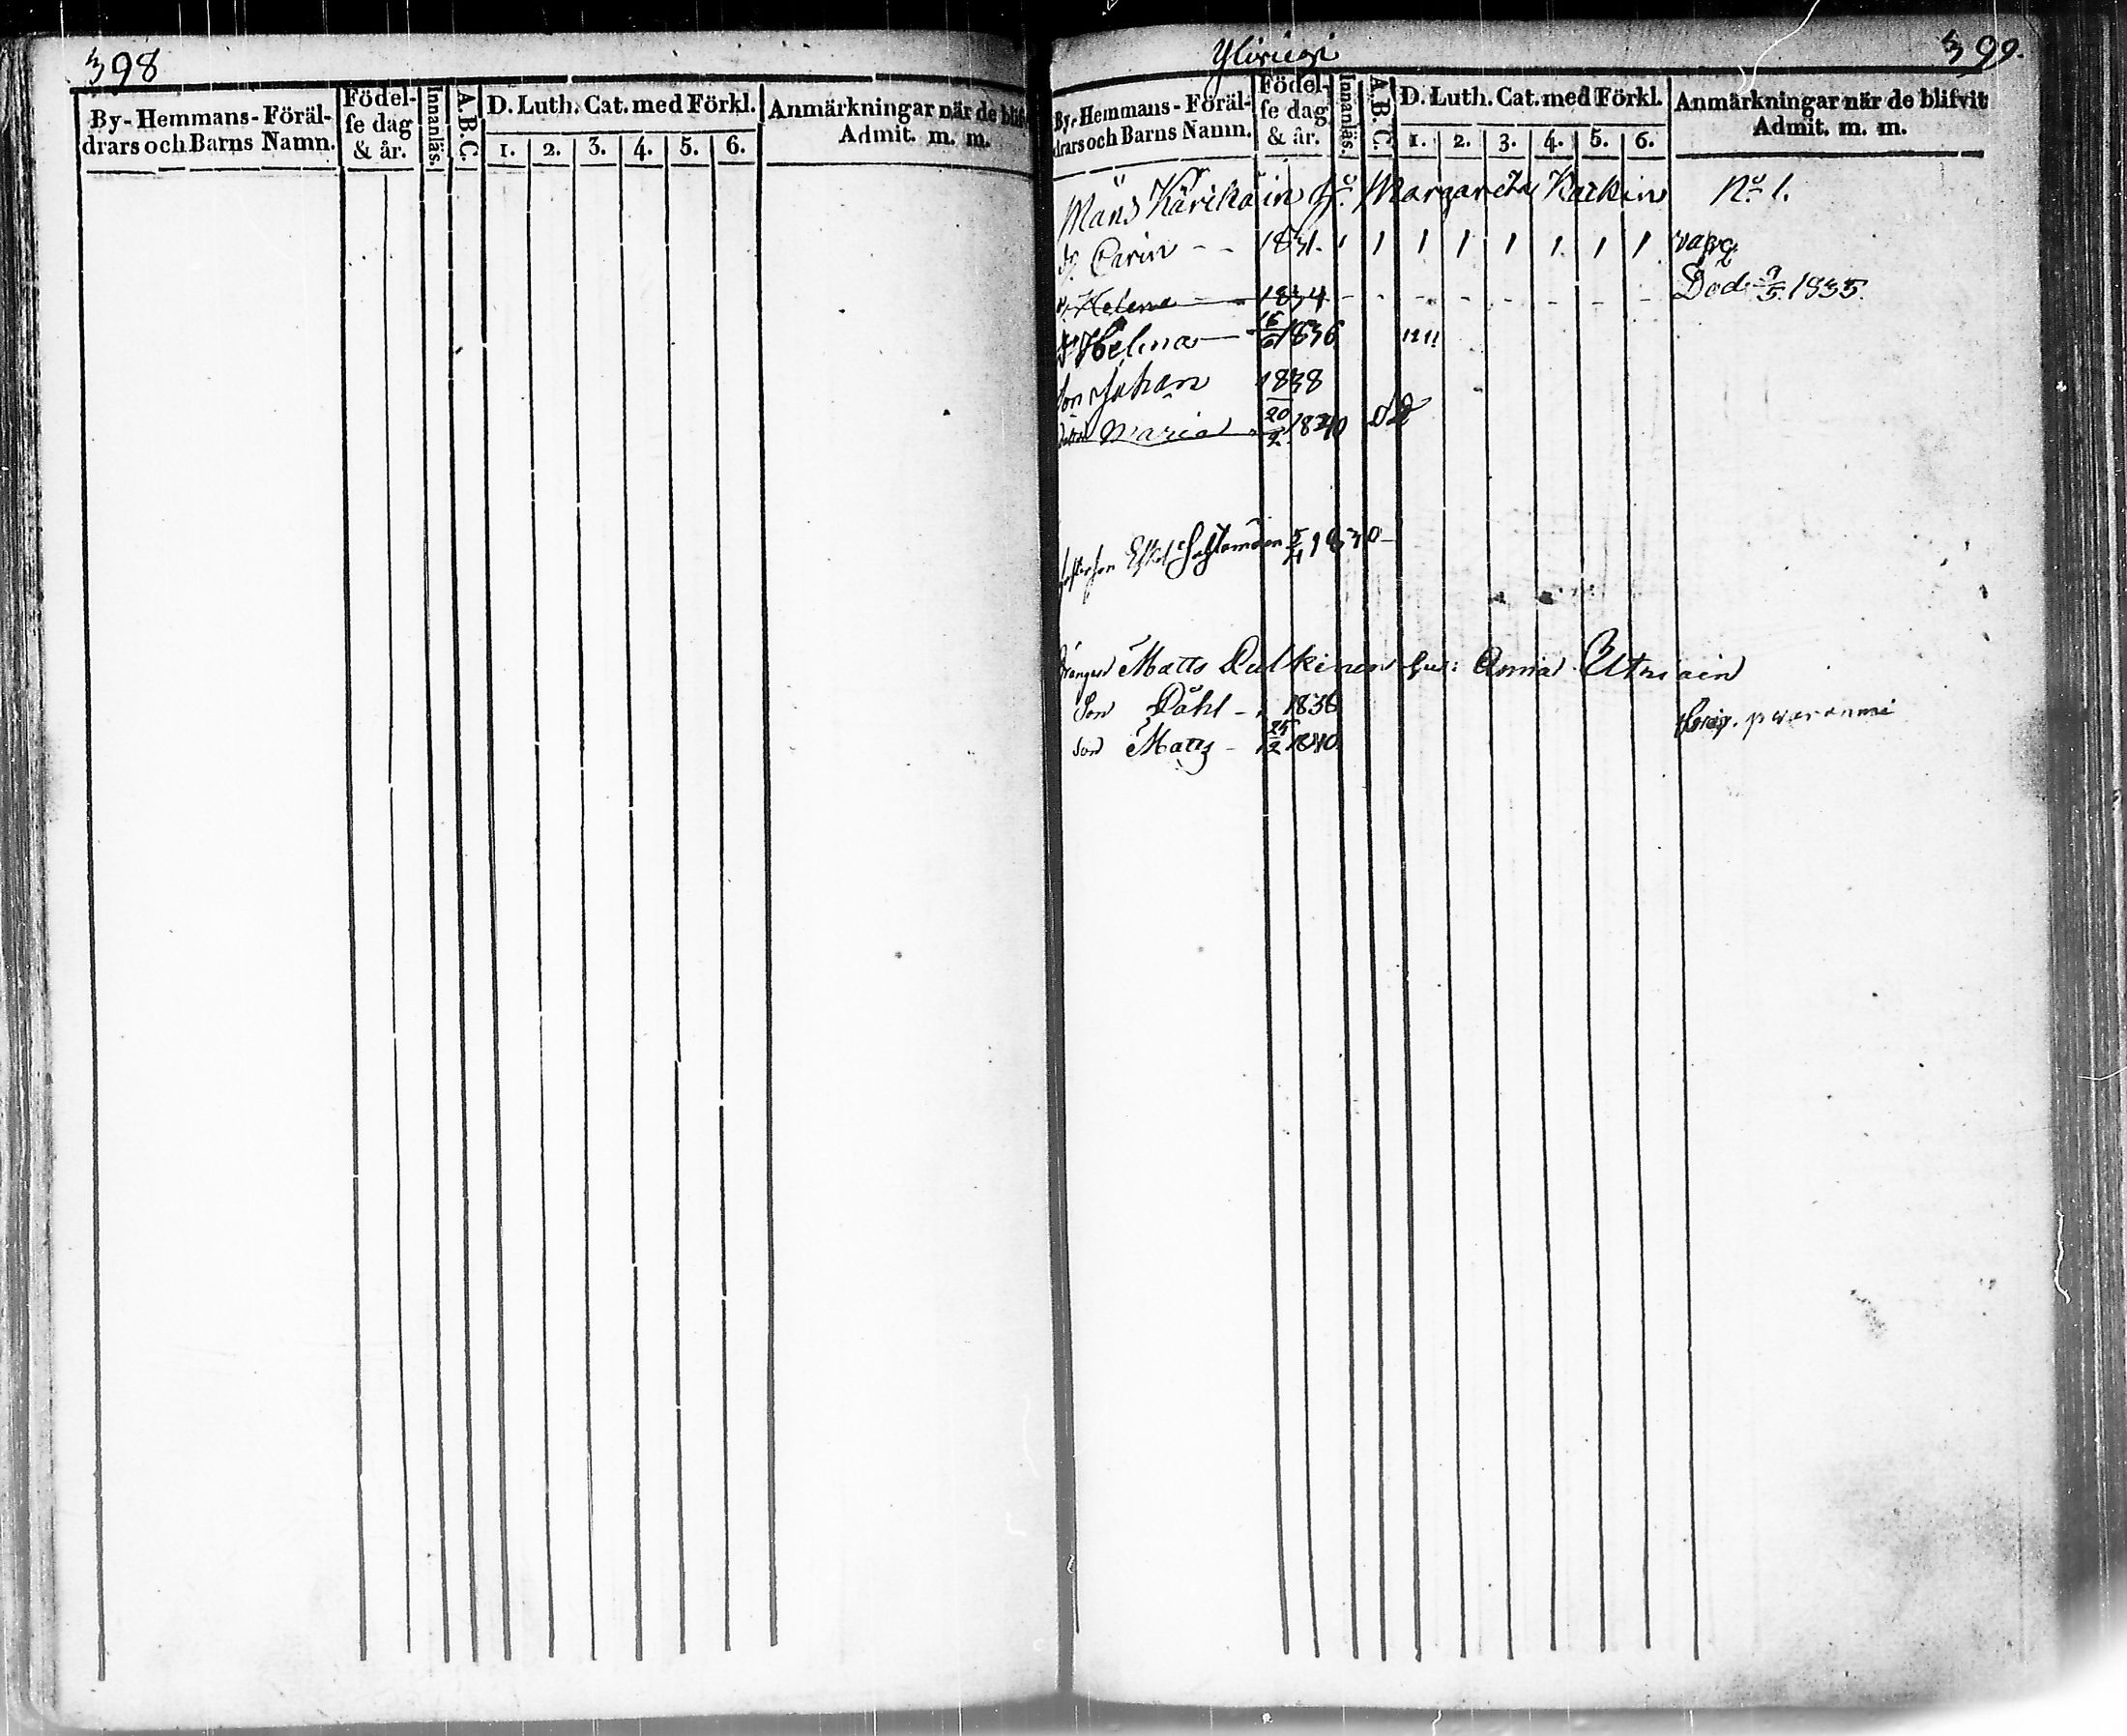 398
By-Hemmans-Föräl-
drars och Barns Namn.
Födel-
se dag
& år.
Innanläs.
A.B.C.
D. Luth. Cat. med Förkl.
1. 2. 3. 4. 5. 6.
Anmärkningar när de blifv
Admit. m. m.
399.
By-Hemmans-Föräl-
drars och Barns Namn.
Födel-
se dag
& år.
Innanläs.
A.B.C.
D. Luth. Cat. med Förkl.
1. 2. 3. 4. 5. 6.
Anmärkningar när de blifvit
Admit. m. m.
Måns Kärikäin Margareta No 1.
Carin - - 1831. 1 1 1 1 1 1 1 1
Helena 1834 - - - - - - - - Död 1835.
Helena 15/6 1836
Son Johan 1838
Maria 20/2 1840
5/4 1830
Matts Pulkinen hu: Anna
Son Påhl - 1836
Son Matts - 25/12 1840